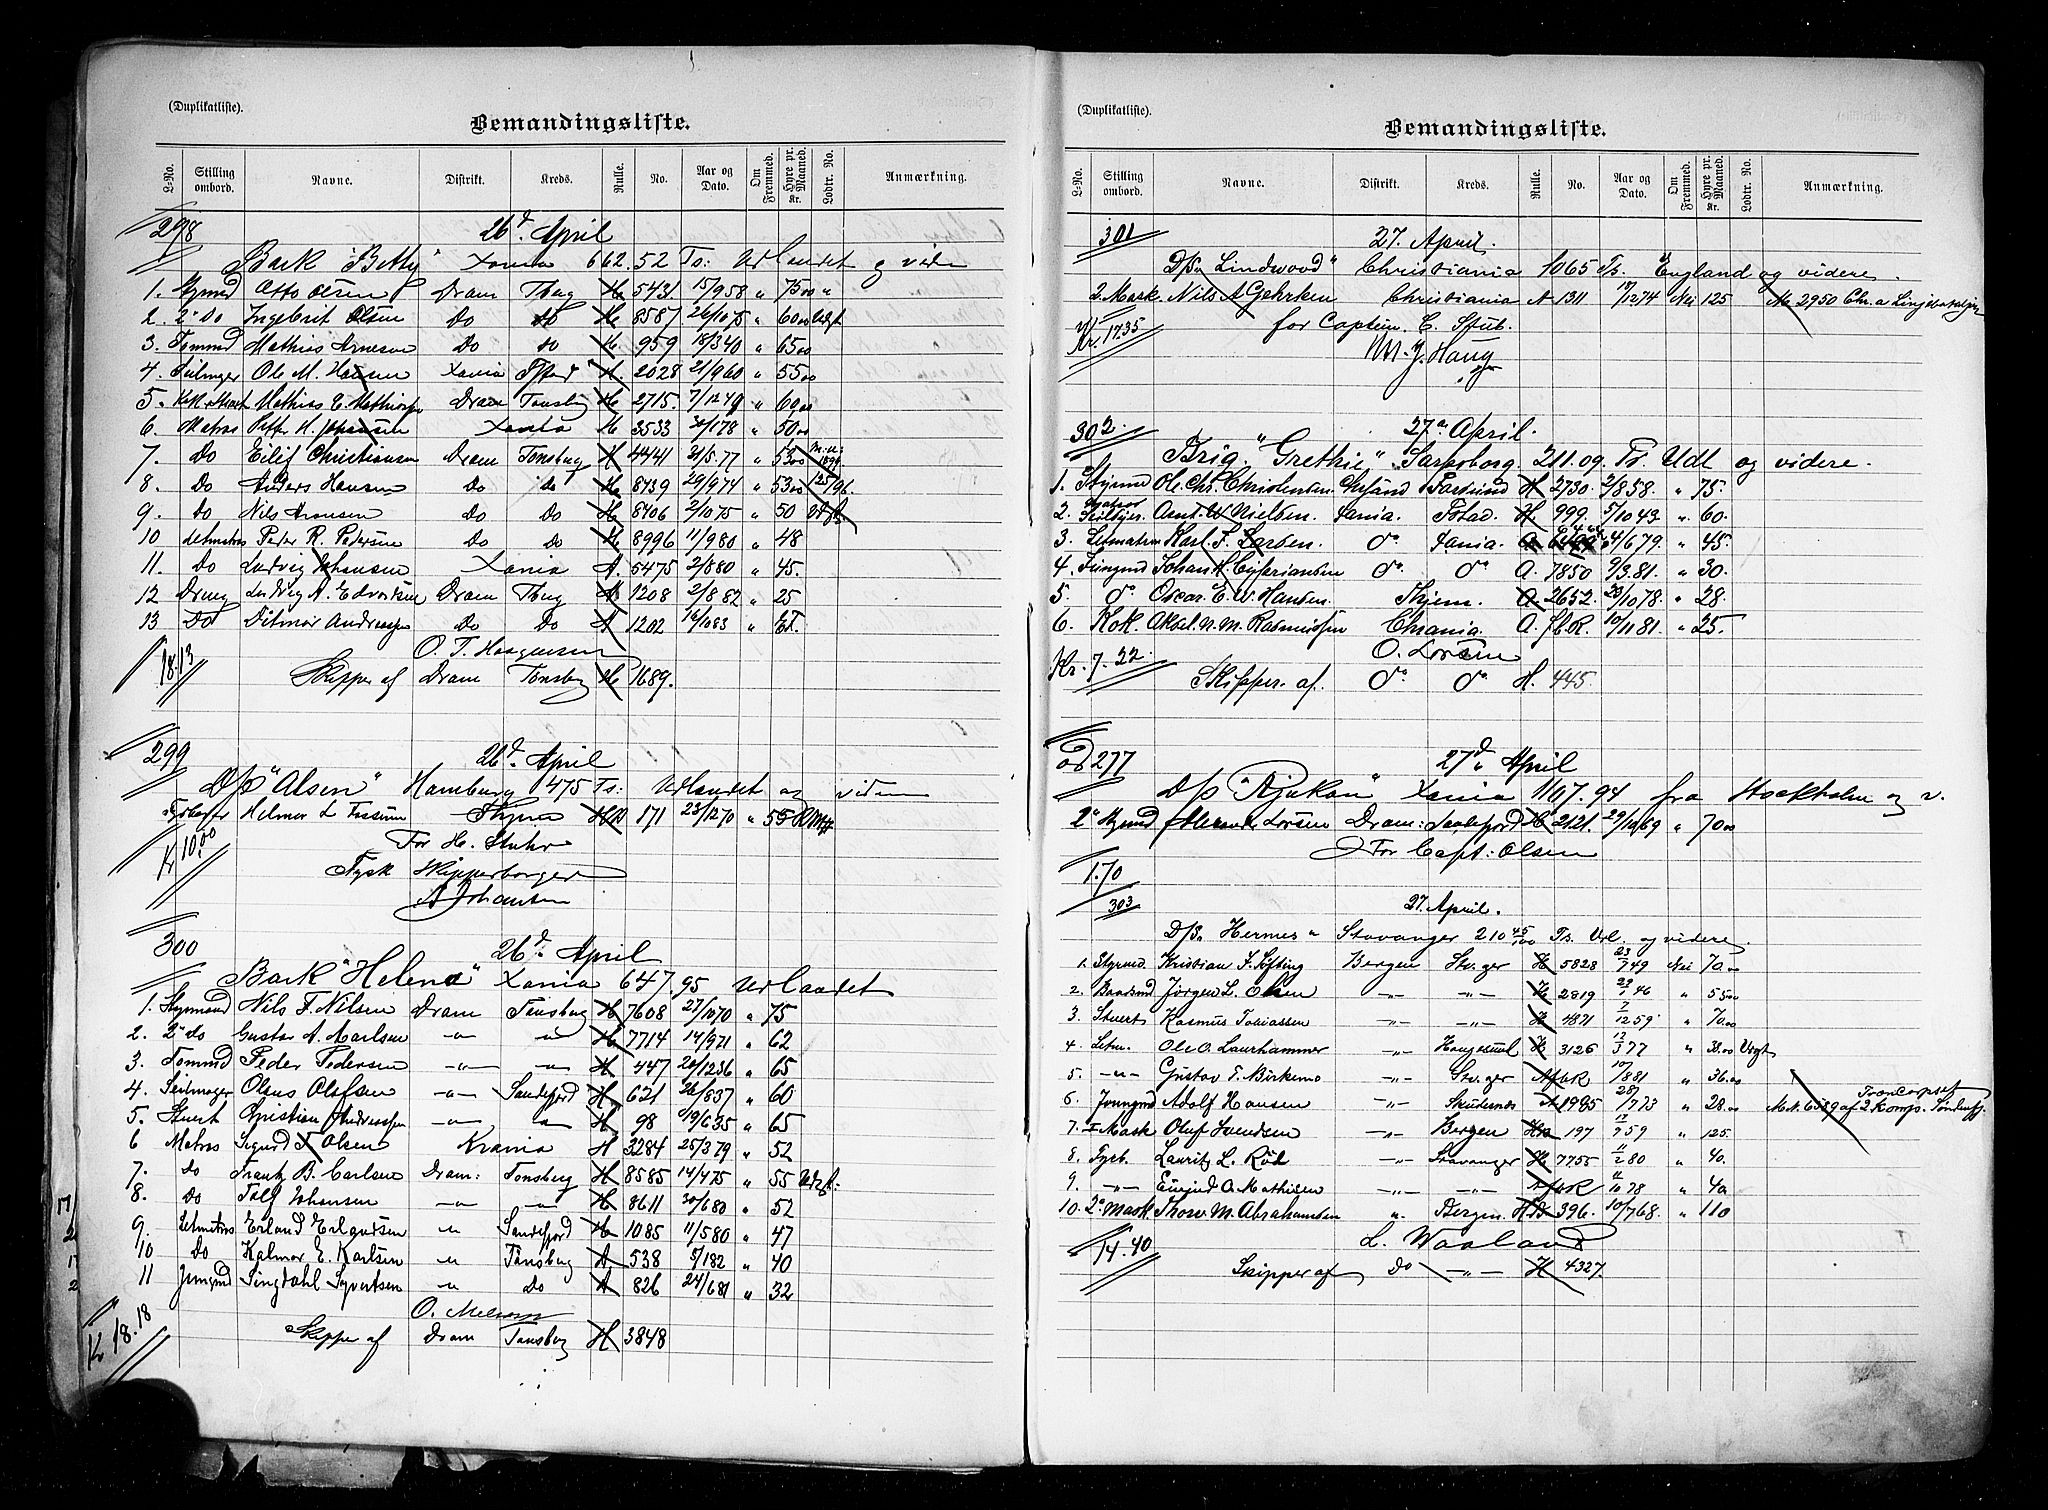 (Duplikatliste).
Bemandingsliste.
L-No. Stilling ombord. Navne. Distrikt. Kreds. Rulle. No. Aar og Dato. Om Fremmed. Hyre pr. Maaned. Kr. Lodtr. No. Anmærkning.
298 26d April
Bark "Betty" Xania 662.52 Ts: Udlandet og viden
1. Otto Olsen Dram Tbug H 5431 15/9 58 " 75 00 "
2. 2d Do Ingebrit Olsen Do Do H 8587 26/10 75 " 60 00 Udsft
3. Tømmd Mathias Arnesen Do Do H. 959 18/3 40 " 65 00
4. Seilmager Ole M. Hansen Xania Fstad H. 2028 21/9 60 " 55 00
5. Mathias E. Dram Tonsbg H 2715. 7/12 49 " 60 00
6. Matros H. Johansen Xania H 3533 " 50 00
7. Do Eilef Christiansen Dram Tonsbug H 4441 21/5.77 " 53 00
8. Do Anders Hansen Do Do H. 8739 29/9 74 " 53 00 125/96.
9. Do Nils Aronsen Do Do H 8706 2/10 75 " 50 Udsft
10 Letmatros Peder R. Pedersen Do Do H 8996 11/9 80 " 48
11. Do Ludvig Johansen Xania A. 5475 2/8 80 " 45.
12 Dreng Ludvig A. Edvardsen Dram Tbug A 1208 2/8 82 " 25
13 Do Ditmar Andressen Do Do A 1202 16/10 83 " Et.
O. T. Haagensen
18.13 Skipper af Dram Tonsbg H 1689.
299 26d April
D/S "Alsen" Hamburg 475 Ts: Udlandet og viden
Fyrbøter Helmer L Fossum HB 171 23/12 70 " 55
Kr 10.00 For H. Stuhr
Tysk Skipperborger
A Johansen
300 26d April
Bark "Helene" Xania 647.95 Udlandet
1. Styrmand Nils F. Nilsen Dram Tonsbug H 7608 27/10 70 " 75
2. 2d Do Gustav A. Carlsen — " — " H 7714 14/9 71 " 62
3. Tømmd Peder Pedersen — " — — " — H 447 20/12 36 " 65
4. Seilmager Olaus Olafsen — " — Sandefjord H. 621 26/8 37 " 60
5. Stuert Christian Andressen — " — " H 98 19/6 35 " 65
6 Matros Sigurd T Olsen Krania H 3284 25/3 79 " 52
7. Do Frantz B. Carlsen Dram: Tonsberg H 8585 14/4 75 " 55 Udsft.
8. Do Tolf Johansen — " — — " — H 8611 30/6 80 " 52
9. Letmatros Erland Erlandsen " Sandefjord H 1085 11/5 80 " 47
10 Do Kalmar E. Karlsen " Tonsberg A 538 5/1 82 " 40
11 Jungmd Singdahl Syvertsen " Do A 826 24/6 81 " 32
O. Nielsen
Kr 18.18 Skipper af Dram Tonsberg H 3848
(Duplikatliste).
Bemandingsliste.
L-No. Stilling ombord. Navne. Distrikt. Kreds. Rulle. No. Aar og Dato. Om Fremmed. Hyre pr. Maaned. Kr. Lodtr. No. Anmærkning.
301 27. April.
D/S "Lindwood" Christiania 1065 Ts. England og videre.
2. Mask. Nils A Gehrken Christiania A 1311 12 74 Nei 125 No 2950 Chr.a
Kr. 17.35 for Captein. C. Stub.
M. J. Haug
302. 27de April.
Brig. "Grethe" Sarpsborg 211.09. Ts. Udl og videre.
1. Styrmd Ole Chr. Christensen Farsund H 2730 2/8 58. " 75.
2. Matros Seilskjer. Arnt. W Nielsen. Xania. Fstad. H. 999 5/10 43 " 60.
3. Letmatros Karl F. Larsen. do. Xania. A 4/6 79. " 45.
4. Jungmd Johan H. Cypriansen do. do. A. 1850 9/3.81. " 30.
5. do. Oscar. E. W Hansen. A. 2652. 23/10 78. " 28.
6. Kok. Aksel. N. M. Rasmussen Chrania. A. f.b.R. 10/11 81. " 25.
O. Larsen
Kr. 7.22. Skipper. af. do. do. H. 445.
ad 277 27d April
D/S "Rjukan" Xania 1107.94 fra Stockholm og v.
2d Styrmd Larsen Dram: Sandefjord H 2121. 29/10 69 " 70 00
For Capt: Olsen
1.70
303 27. April.
D/S. Hermes " Stavanger 210 45/100 Ts. Udl. og videre.
1. Styrmd. Kristian F. Løfting Bergen Stv.ger H 5828 23/7 49 Nei 70.00
2. Baadsmd Jørgen L. Olsen — " — — " — H 2819 23/1 46 " 55 00
3. Stuert Rasmus Tobiassen — " — — " — H 4871 7/12 59 " 70.00
4. Letm. Ole O. Laurhammer — " — Haugesund H 3126 12/3 77 " 38.00 Udsgt
5. — " — Gustav T. Birkemo — " — Stv.ger A f b R 10/8 81 " 36.00
6. Jungmd Adolf Hansen — " — Skudesnæs A 1985 28/7 73 " 28.00 M.N. 6589 af 2 Komp. Søndenfj. Trancorpset
7. 1 Mask Oluf Svendsen — " — Bergen HB 197 12/9 59 " 125.
8. Fyrb. Lauritz L. Röd — " — Stavanger H 7755 11/2 80 " 40.
9. — " — Einjud A. Mathisen — " — — " — A f b R 11/10 78 " 40
10. 2d Mask. Thorv. M. Abrahamsen " Bergen HB 396. 10/7 68. " 110
L. Waaland
14.40 Skipper af Do — " — H 4327.